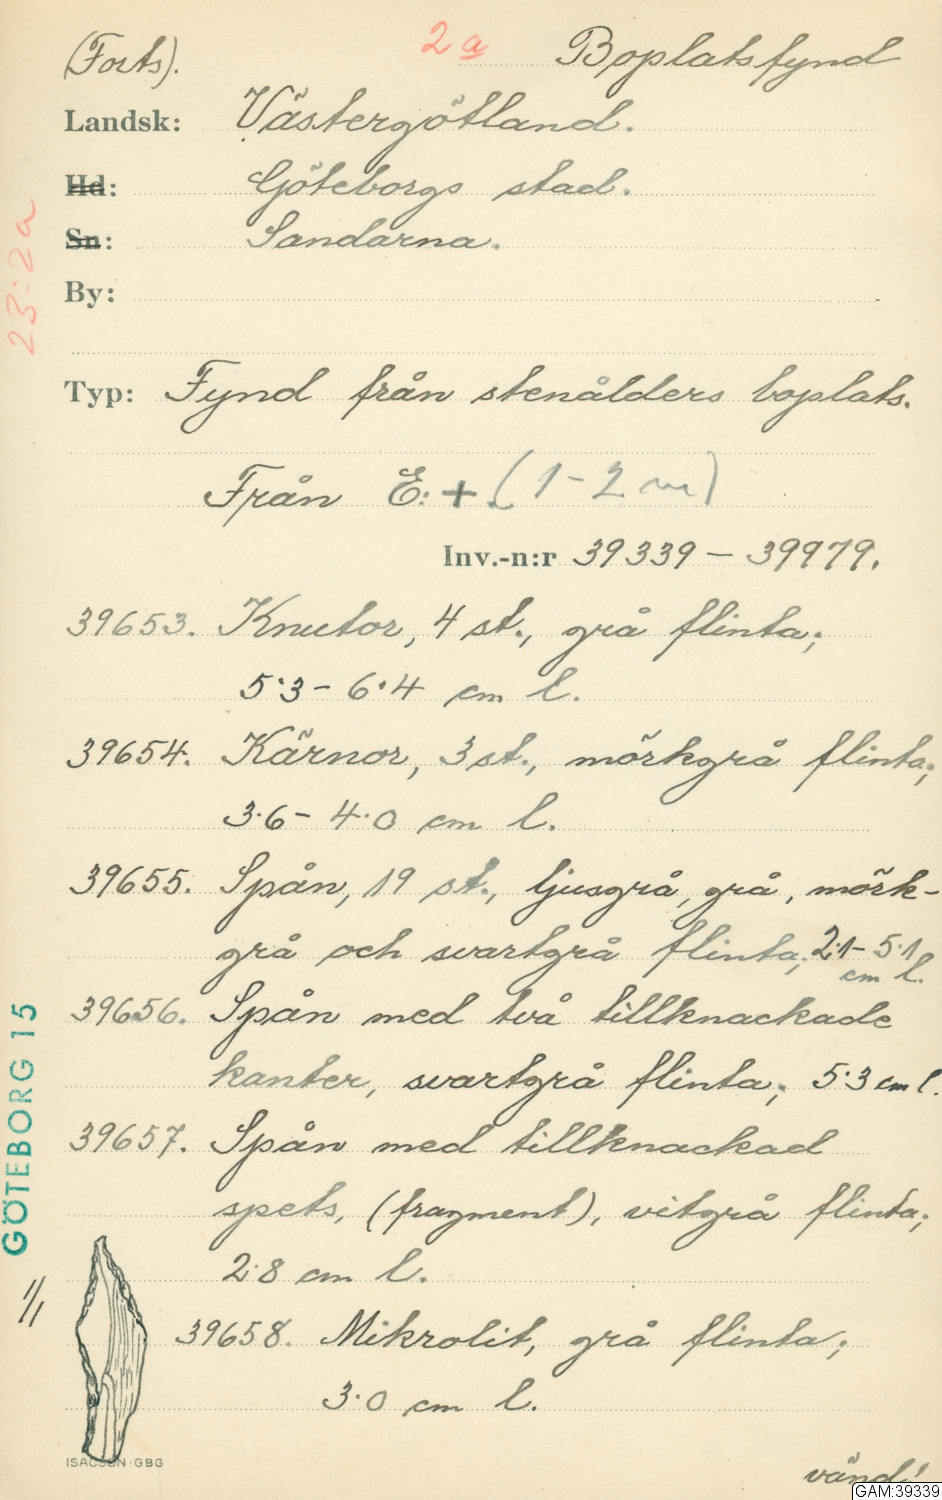 (Forts). 2a Boplatsfynd
Landsk: Västergötland.
Hd: Göteborgs stad.
Sn: Sandarna.
By:
Typ: Fynd från stenålders boplats.
Från E: + (1-2 m)
Inv.-n:r 39339 – 39979.
39653. Knutor, 4 st., grå flinta;
5·3 – 6·4 cm l.
39654. Kärnor, 3 st., mörkgrå flinta;
3·6 – 4·0 cm l.
39655. Spån, 19 st., ljusgrå, grå, mörk-
grå och svartgrå flinta; 2·1 – 5·1
cm l.
39656. Spån med två tillknackade
kanter, svartgrå flinta; 5·3 cm l.
39657. Spån med tillknackad
spets, (fragment), vitgrå flinta;
2·8 cm l.
39658. Mikrolit, grå flinta;
3·0 cm l.
ISACSON·GBG
vänd!
GAM:39339
23·2a
GÖTEBORG 15
1/1